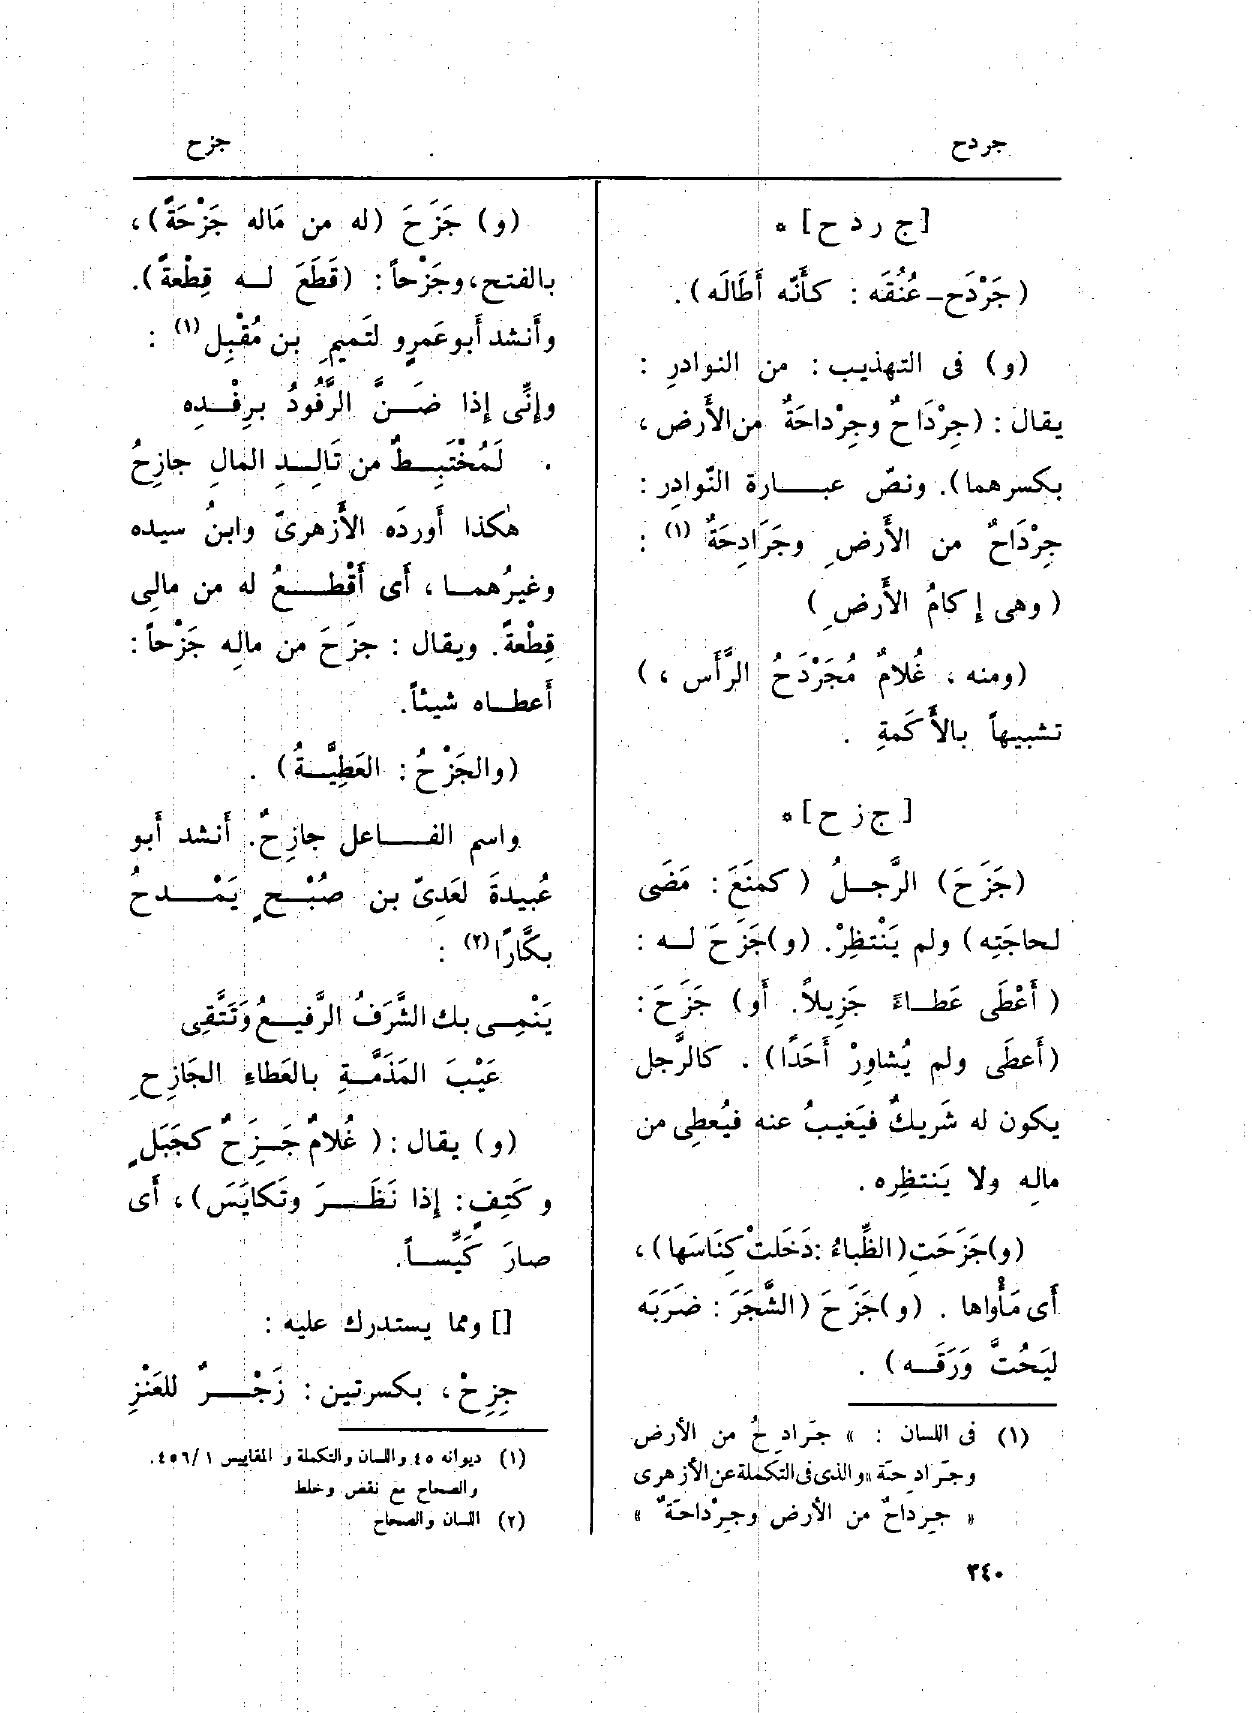 جردح
جزح
[ ج ر د ح ] *
(جَرْدَح عُنُقَه : كأَنّه أَطَالَه).
(و) فى التهذيب : من النوادرِ :
يقال : (جِرْدَاحٌ وجِرْداحَةٌ من الأَرض ،
بكسرهما). ونصّ عبارة النّوادِر :
جِرْدَاحٌ من الأَرضِ وجَرَادِحَةٌ (١) :
( وهى إكامُ الأَرضِ )
(ومنه ، غُلامٌ مُجَرْدَحُ الرَّأْس ، )
تشبيهاً بالأَكَمةِ .
[ ج ز ح ] *
(جَزَحَ) الرَّجلُ ( كمنَعَ : مَضَى
لحاجَتِه) ولم يَنْتظِرْ. (و)جَزَحَ له :
( أَعْطَى عَطاءً جَزِيلاً. أَو) جَزَحَ :
(أَعطَى ولم يُشاوِرْ أَحَدًا) . كالرَّجل
يكون له شَريكٌ فيَغيبُ عنه فيُعطِى من
مالِه ولا يَنتظِره .
(و)جَزَحَتِ (الظِّباءُ : دَخَلتْ كِنَاسَها) ،
أَى مَأْواها . (و)جَزَحَ (الشَّجَرَ : ضرَبَه
ليَحُتَّ وَرَقَه ) .
(١) فى اللسان : » جَرادِحُ من الأرض
وجَرادِحَة » والذى فى التكملة عن الأزهرى
« جِرداحٌ من الأرض وجِرْداحَةٌ »
(و) جَزَحَ (له من مَاله جَزْحَةً) ،
بالفتح ، وجَزْحاً : (قَطَعَ له قِطْعةً).
وأنشد أَبو عَمرٍو لتَميمِ بن مُقْبِل (١) :
وإنِّى إذا ضَنَّ الرَّفُودُ بِرِفْدِه
لَمُخْتَبِطٌ من تَالِدِ المالِ جازِحُ
هٰكذا أَوردَه الأَزهرىّ وابنُ سيده
وغيرُهما ، أَى أَقْطعُ له من مالِى
قِطْعةً. ويقال : جزَحَ من مالِه جَزْحاً :
أَعطاه شيئاً.
(والجَزْحُ : العَطِيَّةُ) .
واسم الفاعل جازِحٌ. أَنشد أَبو
عُبيدةَ لعَدِىّ بن صُبْحٍ يَمْدحُ
بكَّارًا (٢) :
يَنْمِى بك الشَّرَفُ الرَّفيعُ وَتَتَّقِى
عَيْبَ المَذَمَّةِ بالعَطاءِ الجَازِحِ
(و) يقال : ( غُلامٌ جَزِحٌ كجَبَلٍ
وكَتِفٍ : إذا نَظَرَ وتَكايَسَ) ، أَى
صارَ كَيِّساً.
[] ومما يستدرك عليه :
جِزِحْ ، بكسرتين : زَجْرٌ للعَنْزِ
(١) ديوانه ٤٥ واللسان والتكملة و المقاييس ٤٥٦/١.
والصحاح مع نقص وخلط
(٢) اللسان والصحاح
٣٤٠